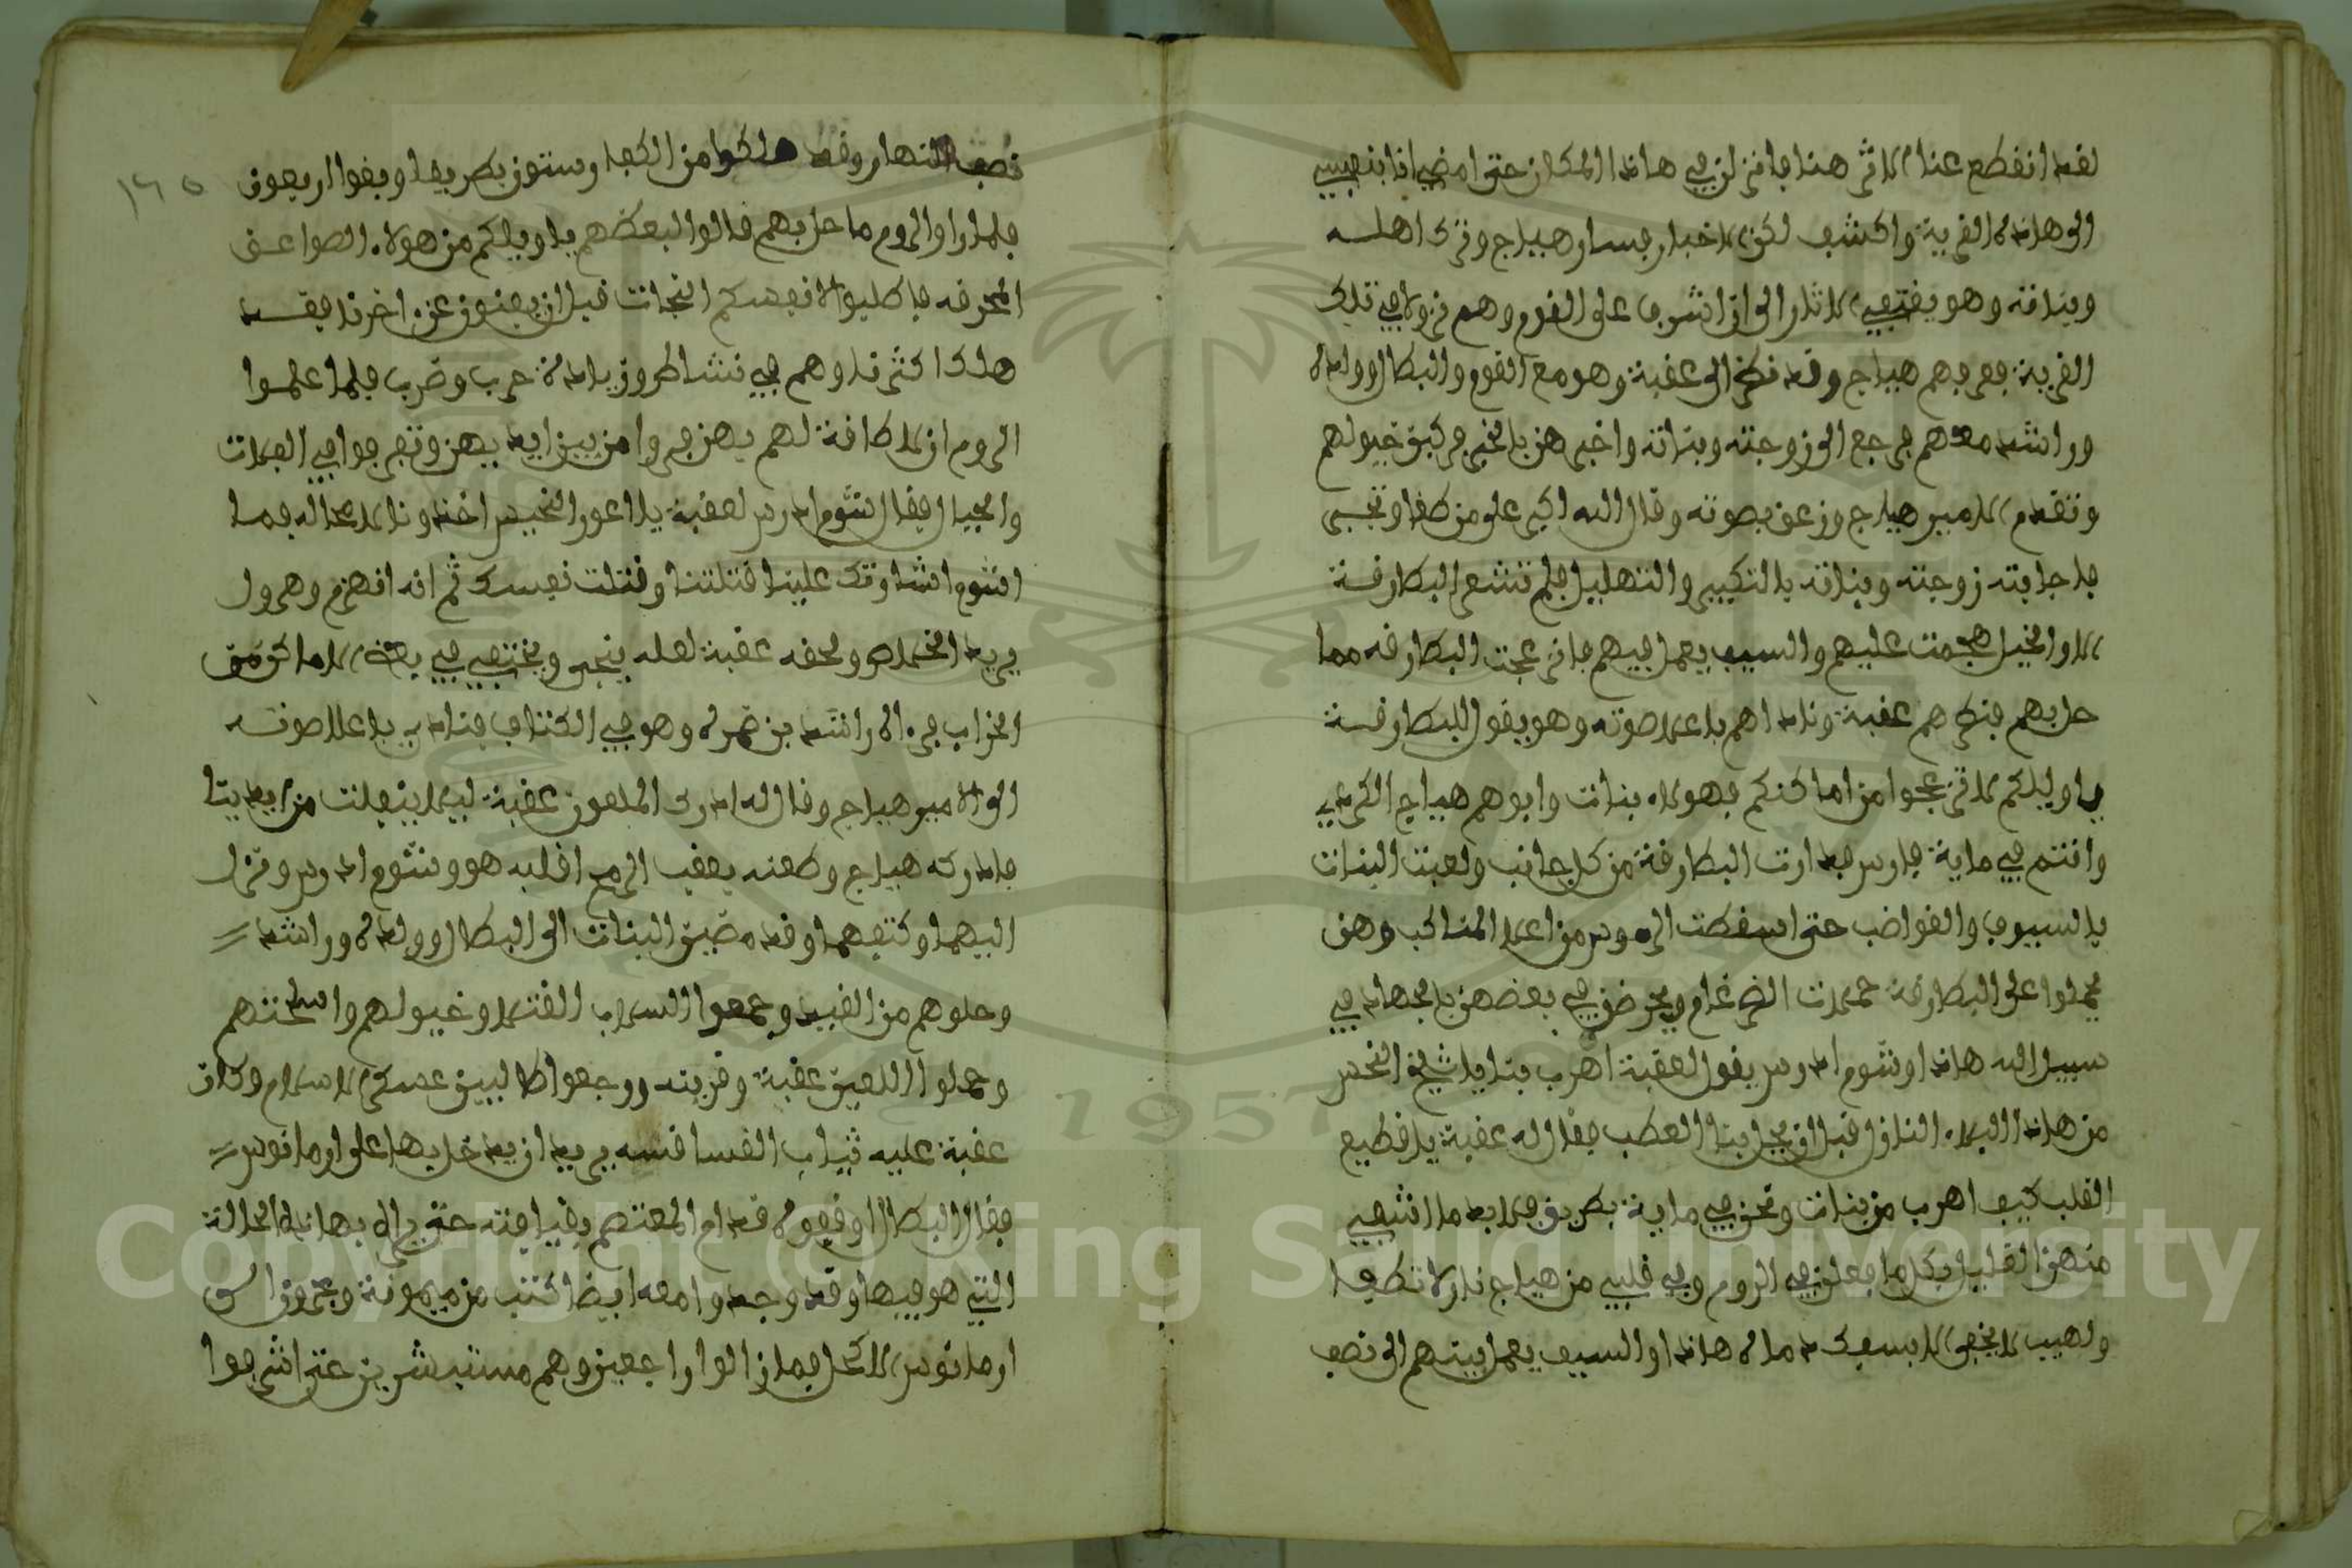 لقد انقطع عنا الاثر هنا فانزلن في هاذا المكان حتى امضي انا بنفسي
الى هاذه القرية واكشف لكن الاخبار فسار هياج وترك اهله
وبناته وهو يقتفي الاثار الى ان اشرف على القوم وهم نزولا في تلك
القرية فعرفهم هياج وقد نظر الى عقبة وهو مع القوم والبطال وولده
وراشد معهم فرجع الى زوجته وبناته واخبرهن بالخبر فركبن خيولهم
وتقدم الامير هياج وزعق بصوته وقال الله اكبر على من طغا وتجبر
فاجابته زوجته وبناته بالتكبير والتهليل فلم تشعر البطارقة
الا والخيل هجمت عليهم والسيف يعمل فيهم فانزعجت البطارقه مما
حل بهم فنظرهم عقبة وناداهم باعلا صوته وهو يقول للبطارقة
يا ويلكم لا تنزعجوا من اماكنكم فهولاء بنات وابوهم هياج الكردي
وانتم في ماية فارس فدارت البطارقة من كل جانب ولعبت البنات
بالسيوف والقواضب حتى اسقطت الروس من اعلا المناكب وهن
يحملوا على البطارقة حملات الضرغام ويحرضن في بعضهن بالجهاد في
سبيل الله هاذا وشوم ادرس يقول لعقبة اهرب بنا يا شيخ النحس
من هاذا البلاء النازل قبل ان يحل بنا العطب فقال له عقبة يا قطيع
القلب كيف اهرب من بنات ونحن في ماية بطريق فلا بد ما اشتفي
منهن الغليل وكل ما فعلن في الروم وفي قلبي من هياج نار لا تطفا
ولهيب لا يخفى الا بسفك دماه هاذا والسيف يعمل بينهم الى نصف
١٦٥
نصف النهار وقد هلكوا من الكفار وستون بطريقا وبقوا اربعون
فلما راوا الروم ما حل بهم قالوا لبعضهم يا ويلكم من هولاء الصواعق
المحرقه فاطلبوا لانفسكم النجات قبل ان يفنون عن اخرنا فقد
هلك اكثرنا وهم في نشاط وزيادة حرب وضرب فلما علموا
الروم ان لا طاقة لهم بهن فروا من بين ايديهن وتفرقوا في الفلات
والجبال فقال شوم ادرس لعقبة يا اعور النحيس اخذونا لا محاله فما
اشوم اشارتك علينا قتلتنا وقتلت نفسك ثم انه انهزم وهرول
يريد الخلاص ولحقه عقبة لعله ينجى ويختفي في بعض الاماكن من
الخراب فراه راشد بن ضمره وهو في الكتاف فنادى باعلا صوته
الى الامير هياج وقال له ادرك الملعون عقبة ليلا ينفلت من ايدينا
فادركه هياج وطعنه بعقب الرمح اقلبه هو وشوم ادرس ونزل
اليهما وكتفهما وقد مضين البنات الى البطال وولده وراشد
وحلوهم من القيد وجمعوا اسلاب القتلا وخيولهم واسلحتهم
وحملوا اللعين عقبة وقرينه ورجعوا طالبين عسكر الاسلام وكان
عقبة عليه ثياب القساقسه يريد ان يدخل بها على ارمانوس
فقال البطال اوقفوه قدام المعتصم بقيافته حتى يراه بهاذه الحالة
التي هو فيها وقد وجدوا معه ايضا كتب من ميمونة وعمرون الى
ارمانوس الاكحل فما زالوا راجعين وهم مستبشرين حتى اشرفوا